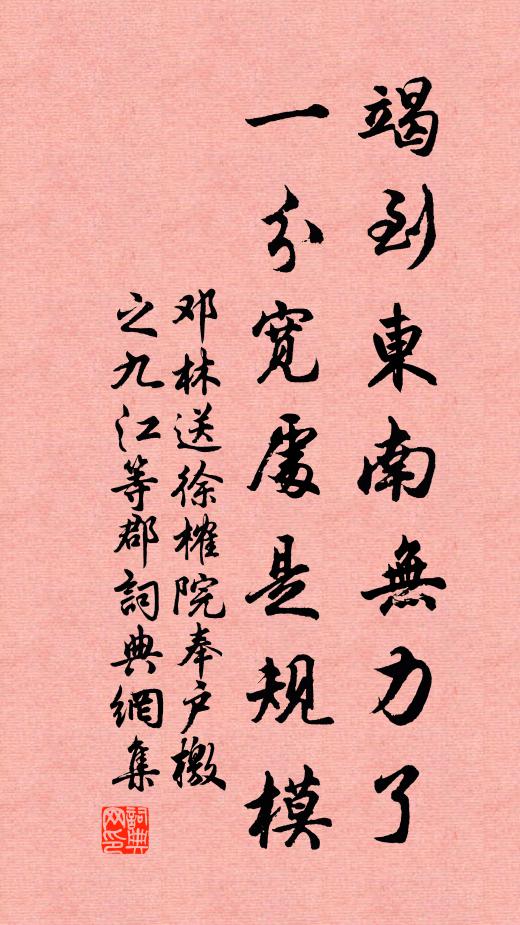 竭到東南無力了
一分寬處是規模
邓林送徐榷院奉户檄
之九江等郡詞典網集
詞典网印